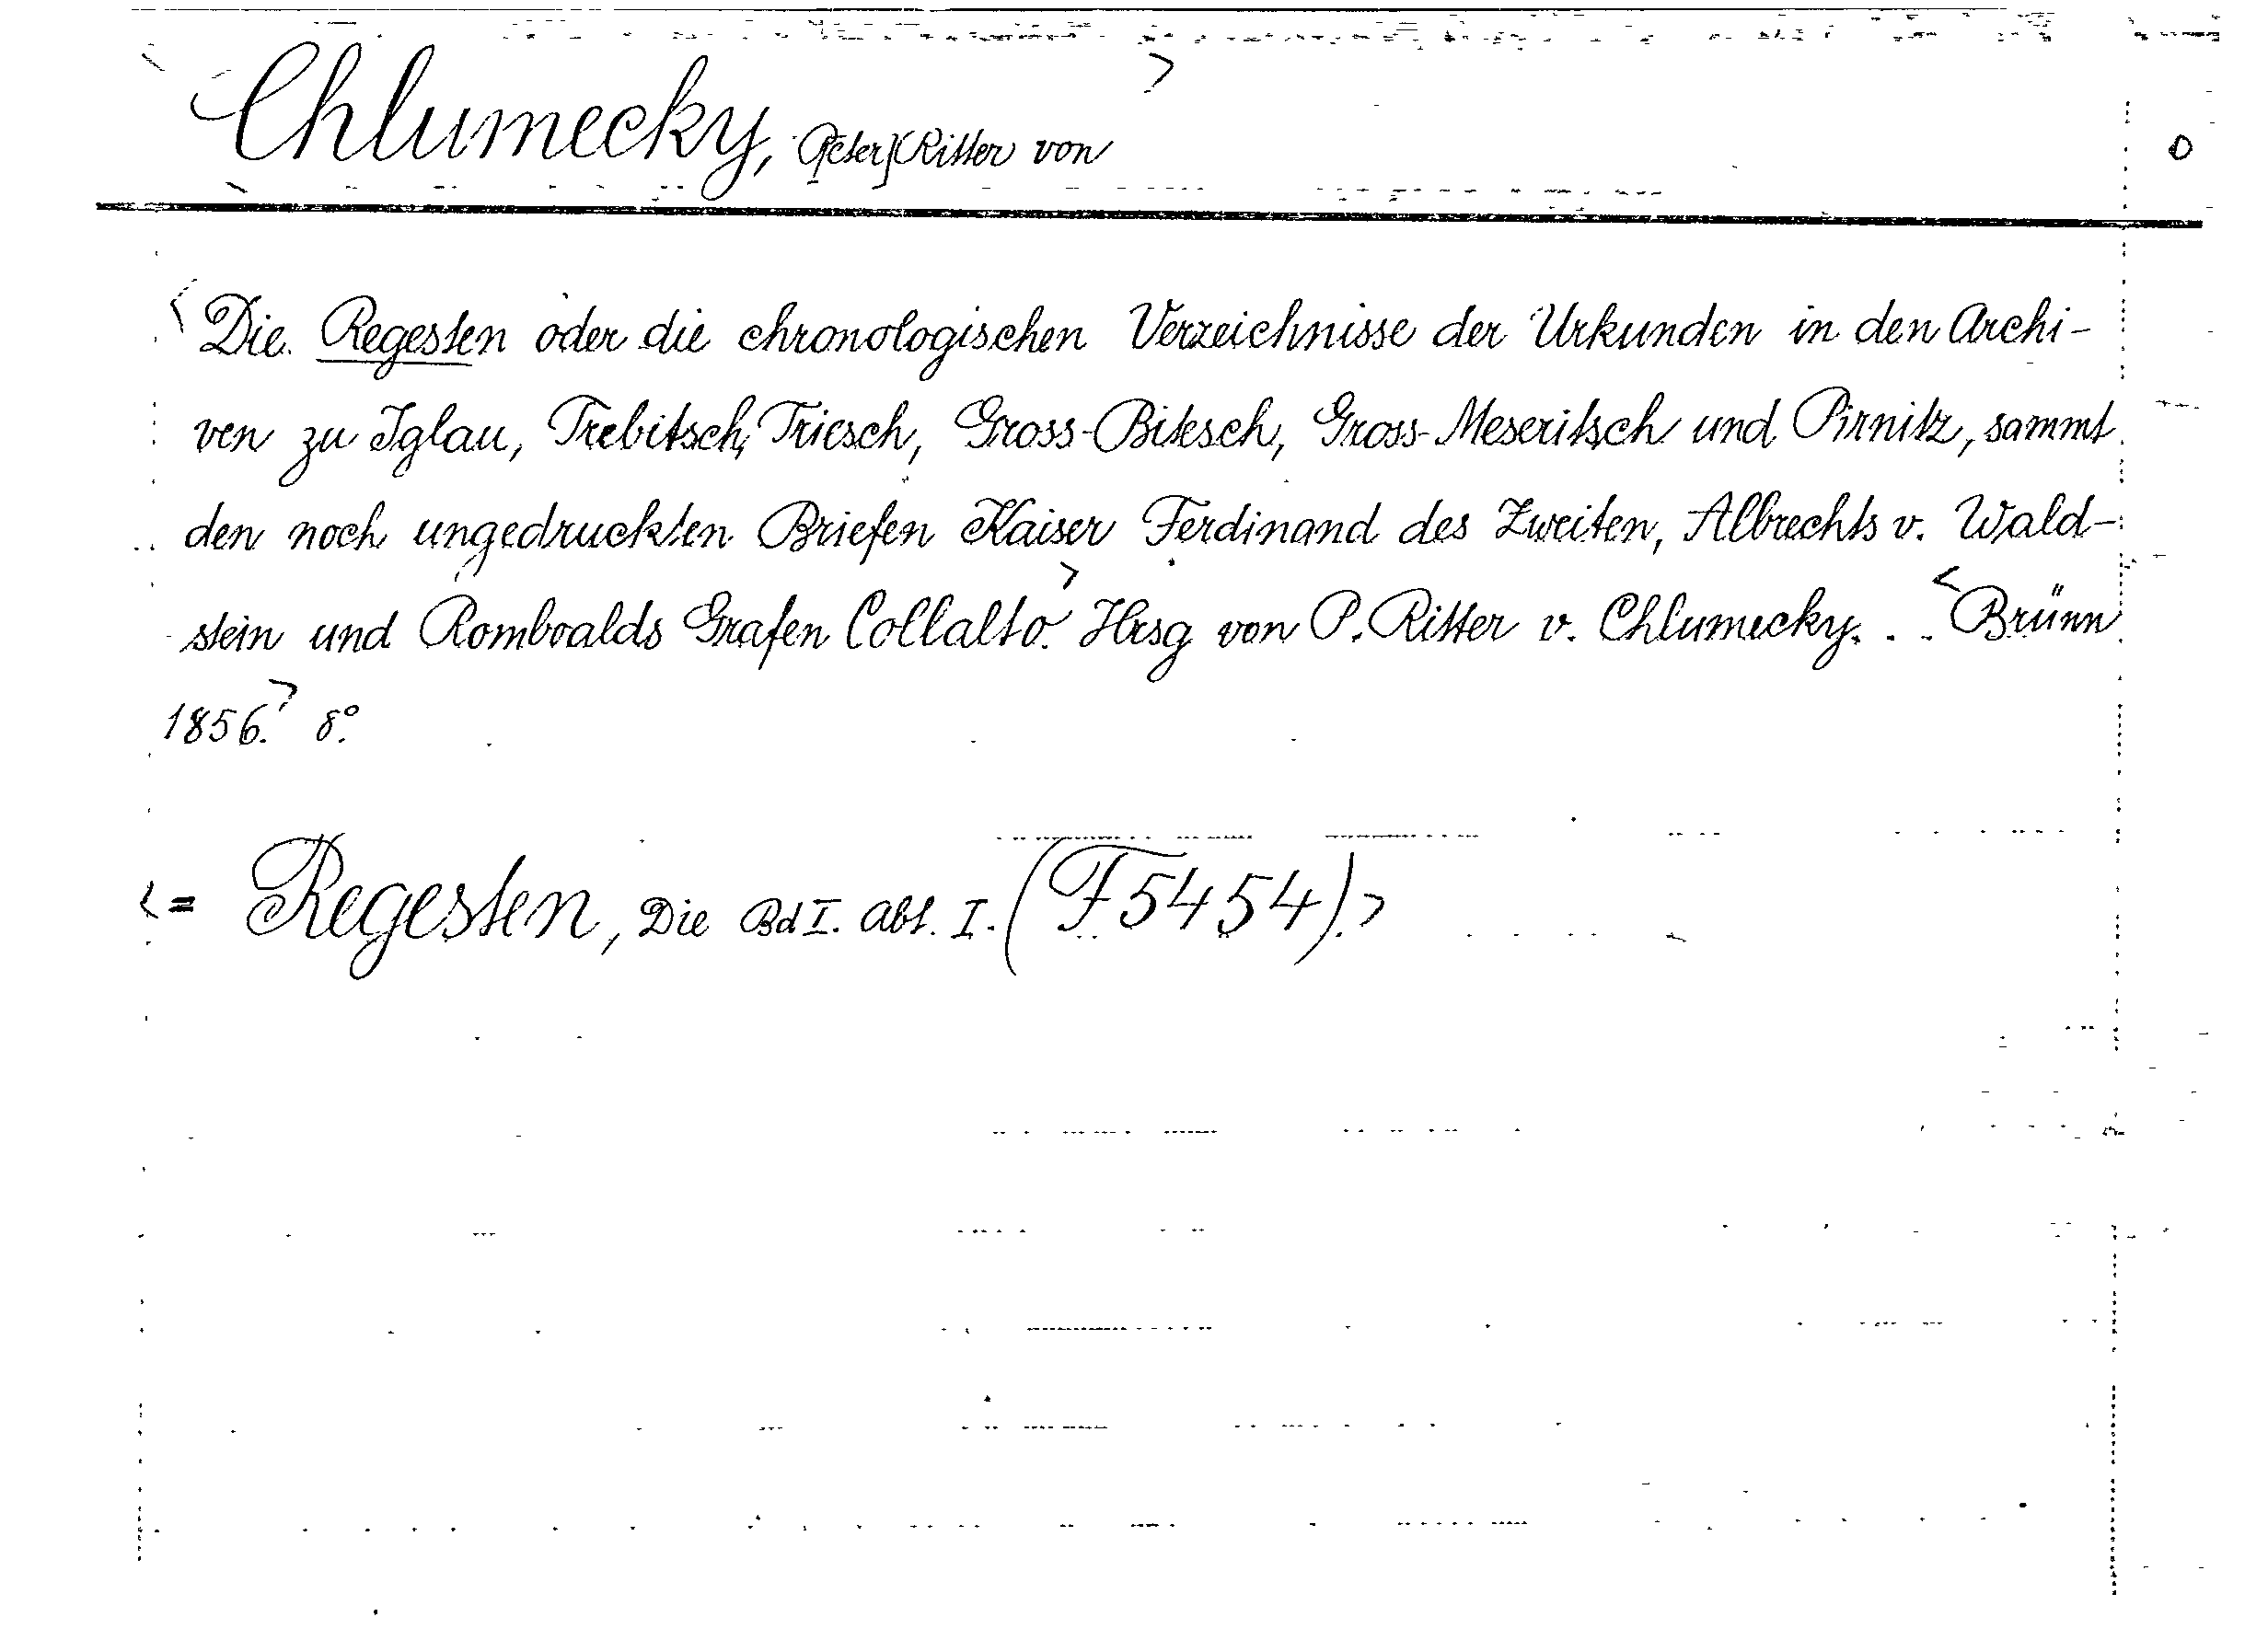 Chlumecky, P[eter] Ritter von
Die Regesten oder die chronologischen Verzeichnisse der Urkunden in den Archi-
ven zu Iglau, Trebitsch, Triesch, Gross-Bitesch, Gross-Meseritsch und Pirnitz, sammt
den noch ungedruckten Briefen Kaiser Ferdinand des Zweiten, Albrechts v. Wald-
stein und Romboalds Grafen Collalto. Hrsg von P. Ritter v. Chlumecky. . . Brünn
1856. 8°.
= Regesten, Die Bd I. Abt. I. (F 5454).